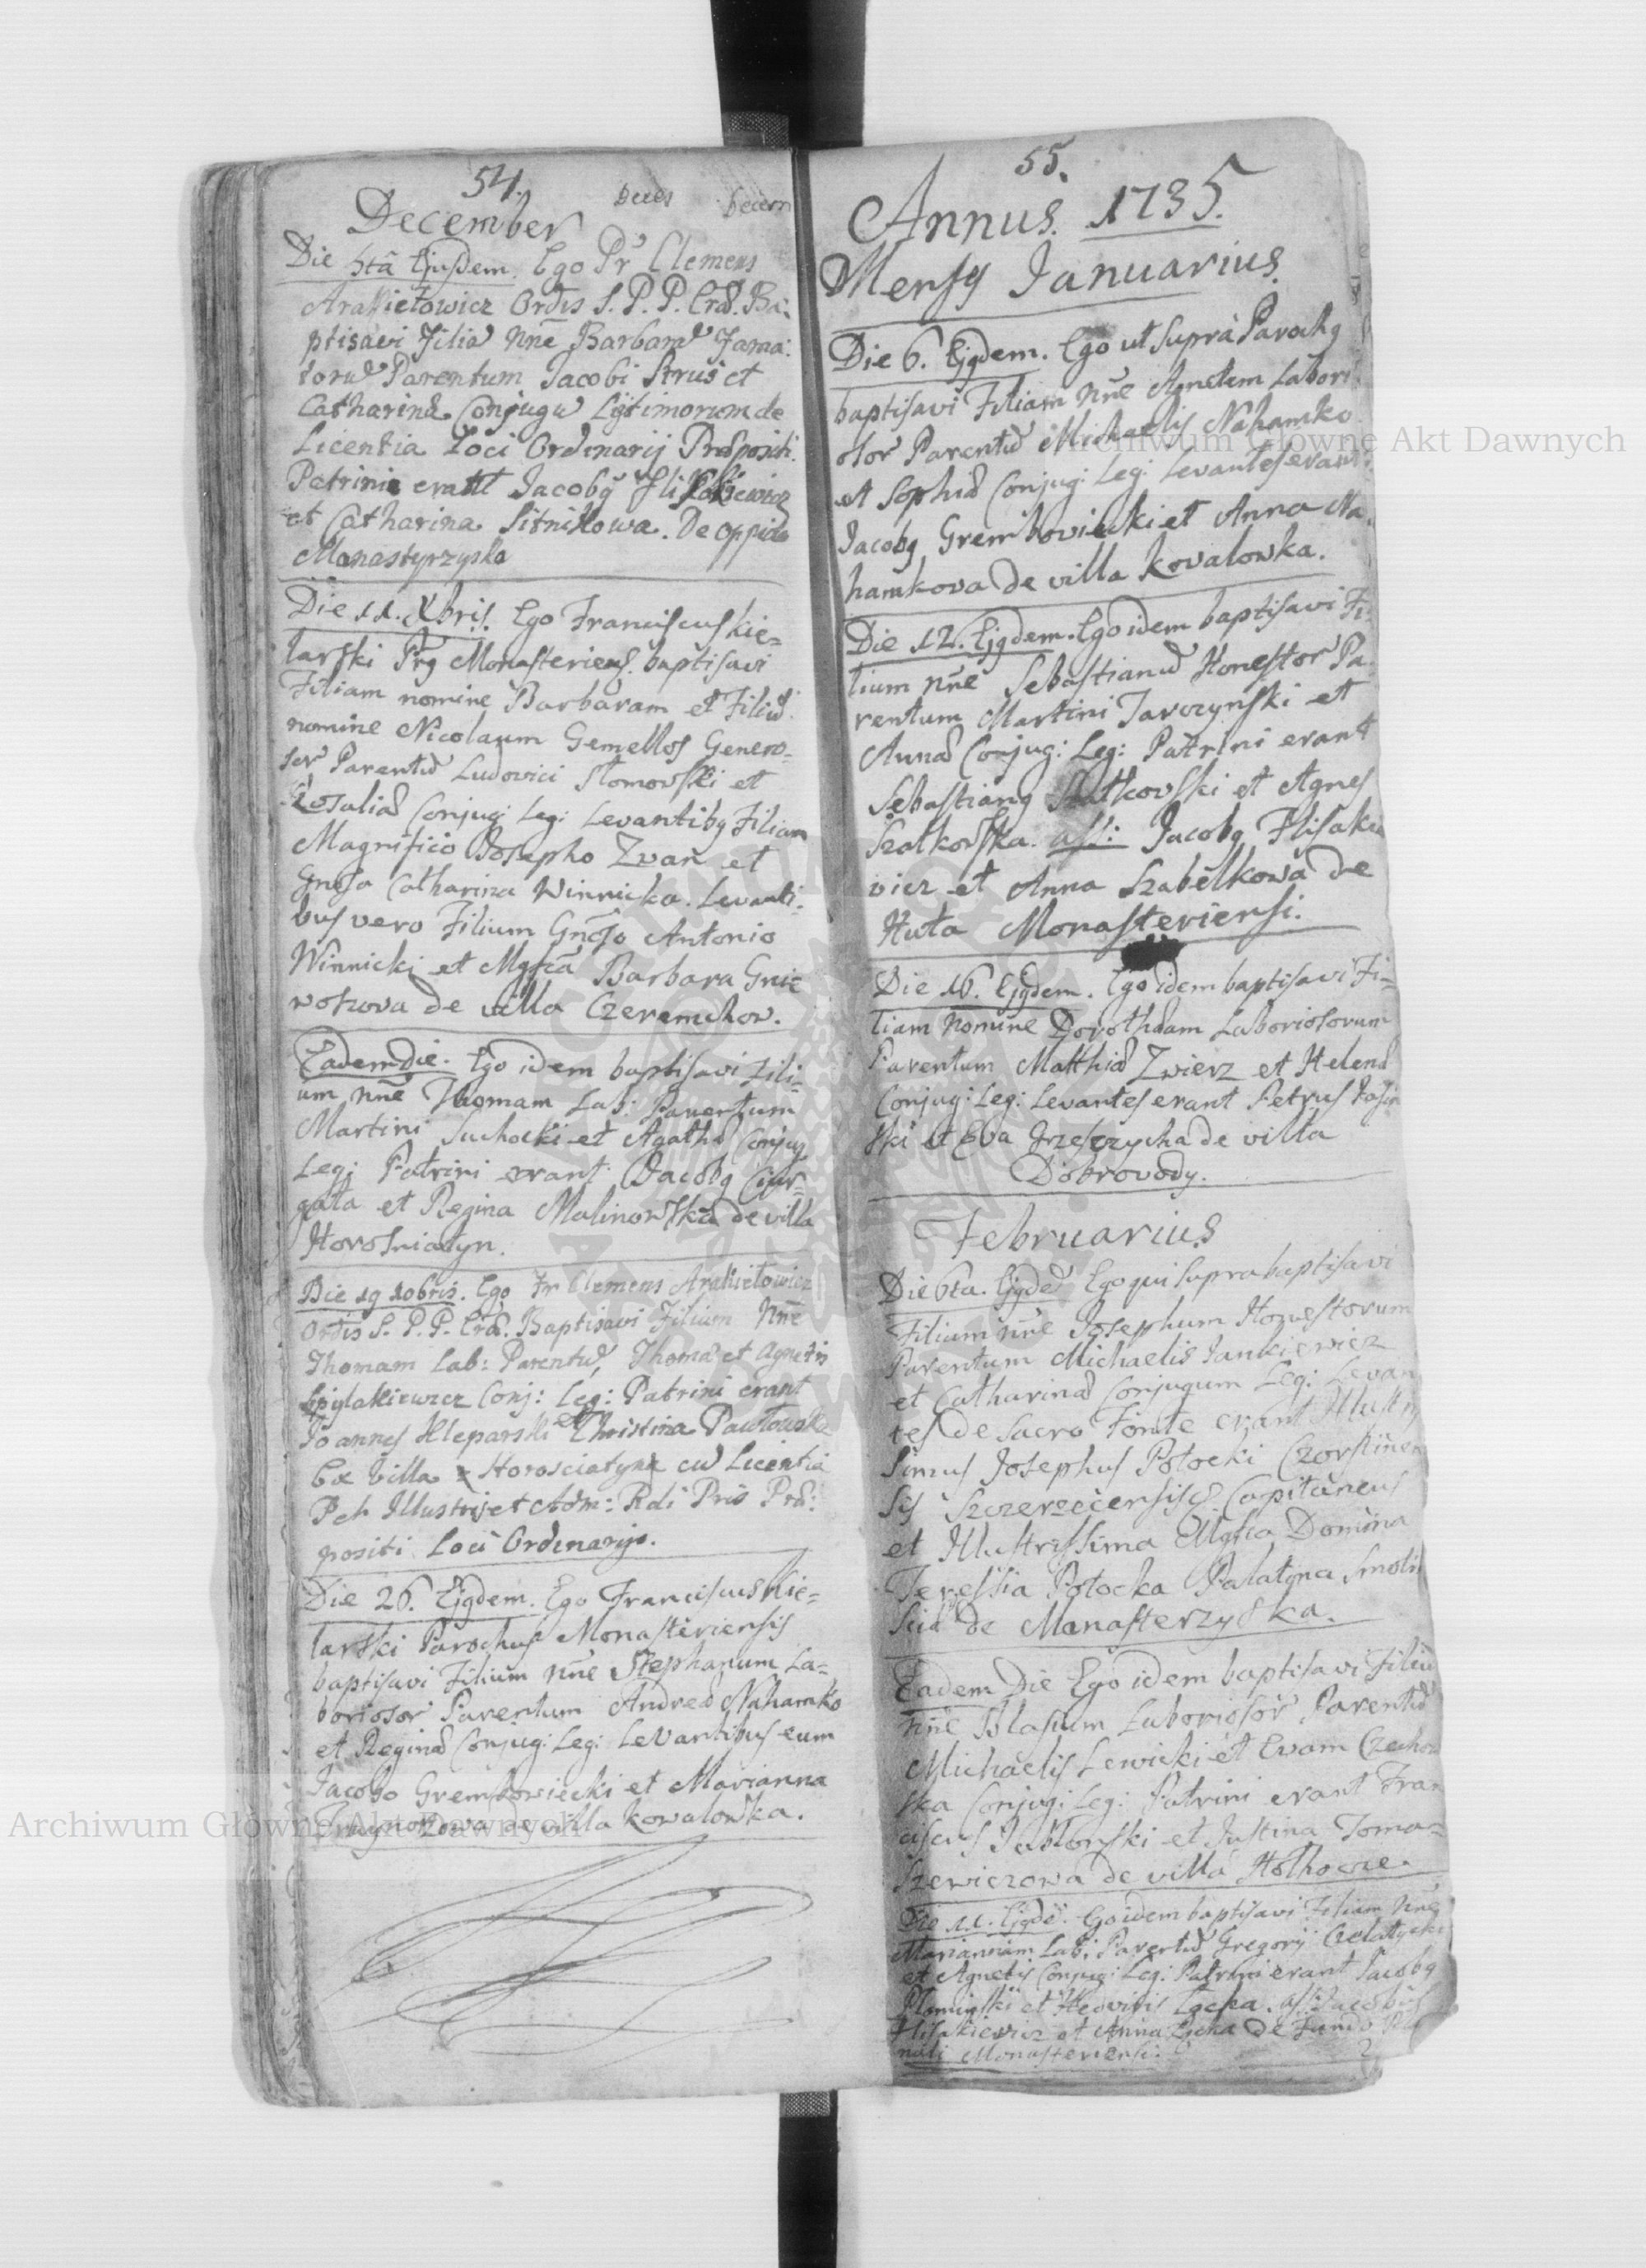 54.
December
Decem
Die 5tâ Ejusdem. Ego Pr Clemens
Arakietowicz Ordis S. P. P. Cräd. Ba:
ptisavi Filiã Nñe Barbarã Fama:
torũ Parentum Jacobi Strus et
Catharinæ Conjugũ Lgitimorum de
Licentia Loci Ordinarij Præpositi.
Patrini erant Jacobg Flisakiewicz
et Catharina Sitnikowa. De oppido
Monastyrzyska
Die 11. Xbris. Ego Franciscus Kie=
larski Prg Monasteriens. baptisavi
Filiam nomine Barbaram et Filiũ
nomine Nicolaum Gemellos Genero=
sor Parentũ Ludovici Stomovski et
Rosaliæ Conjug: Leg: Levantibg Filiam
Magnifico Josepho Zvan et
Gnosa Catharina Winnicka. Levanti=
bus vero Filium Gñoso Antonio
Winnicki et Mgfca Barbara Gnie
woszova de villa Czeremchow.
Eadem die. Ego idem baptisavi Fili=
um nñe Thomam Lab: Parentum
Martini Suchocki et Agathæ Conjug
Leg: Patrini erant Jacobg Ciur=
gata et Regina Malinowska de villa
Horosniatyn.
Die 19 10bris. Ego Fr Clemens Arakietowicz
Ordis S. P. P. Cräd. Baptisavi Filium Nñe
Thomam Lab: Parentũ, Thomæ et Agnetis
Spylakiewicz Conj: Leg: Patrini erant
Joannes Kleparski et Christina Pawłowska
Ex Villa Horosciatyna cũ Licentia
Per Illustris et Adm: Rdi Pris Præ:
positi Loci Ordinarijs.
Die 26. Ejgdem. Ego Franciscus Kie=
larski Parochus Monasteriensis
baptisavi Filium nñe Stephanum La=
boriosor Parentum Andreæ Nahamko
et Reginæ Conjug: Leg: Levantibus eum
Jacobo Grembowiecki et Marianna
de villa Kowalowka.
55.
Annus. 1735.
Mensg Januarius.
Die 6. Ejgdem. Ego ut supra Parochg
baptisavi Filiam nñe Agnetem Labori
osor Parentũ Michaelis Nahamko
et Sophiæ Conjug: Leg: Levantes erant
Jacobg Grembowiecki et Anna Na
hamkova de villa Kovalowka.
Die 12. Ejgdem. Ego idem baptisavi Fi
lium nñe Sebastianũ Honestor Pa
rentum Martini Jarczynski et
Annæ Conjug: Leg: Patrini erant
Sebastiang Szatkovski et Agnes
Szatkowska. ass: Jacobg Flisakie
vicz et Anna Szabelkowa de
Huta Monasteriensi.
Die 16. Ejgdem. Ego idem baptisavi Fi=
liam Nomine Dorothæam Laboriosorum
Parentum Matthiæ Zwierz et Helenæ
Conjug: Leg: Levantes erant Petrus
ski et Eva Grzeszczycha de villa
Dobrovody.
Februarius
Die 6ta. Ejgdẽ Ego qui supra baptisavi
Filium nñe Josephum Honestorum
Parentum Michaelis Jankiewicz
et Catharinæ Conjugum Leg: Levan
tes de Sacro Fonte erant Illustris
simus Josephus Potocki Czorstinen
sis Szczerzecensisq Capitaneus
et Illustrissima Mgfca Domina
Teressia Potocka Palatina Smolen
sciæ de Monasterzyska.
Eadem Die Ego idem baptisavi Filiũ
nñe Blasium Laboriosor Parentũ
Michaelis Lewicki et Evam Czechow
ska Conjug: Leg: Patrini erant Fran
ciscus Jablonski et Justina Toma=
szewiczowa de villa Hołhocze.
Die 11. Ejgdẽ. Ego idem baptisavi Filiam Nñe
Mariannam Lab: Parentũ Gregorij Czelatycki
et Agnetis Conjug: Leg: Patrini erant Jacobg
Plominski et Hedvigis Łącka. ass: Jacobus
Flisakiewicz et Anna de Fundo
Monasteriensi.
Archiwum Główne Akt Dawnych
Archiwum Główne Akt Dawnych